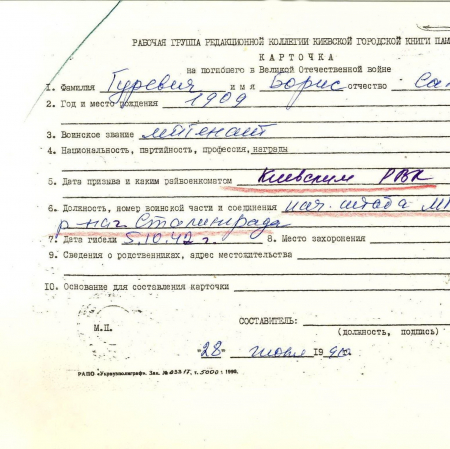 РАБОЧАЯ ГРУППА РЕДАКЦИОННОЙ КОЛЛЕГИИ КИЕВСКОЙ ГОРОДСКОЙ КНИГИ ПАМ
КАРТОЧКА
на погибшего в Великой Отечественной войне
1. Фамилия Гуревич имя Борис отчество Са
2. Год и место рождения 1909
3. Воинское звание лейтенант
4. Национальность, партийность, профессия, награды
5. Дата призыва и каким райвоенкоматом Киевским РВК
6. Должность, номер воинской части и соединения нач. штаба
р-на г. Сталинграда
7. Дата гибели 5.10.42 г. 8. Место захоронения
9. Сведения о родственниках, адрес местожительства
10. Основание для составления карточки
М.П. СОСТАВИТЕЛЬ:
(должность, подпись)
"28" июля 19 г.
РАПО «Укрвузполиграф». Зак. № т. 5000 г. 1990.